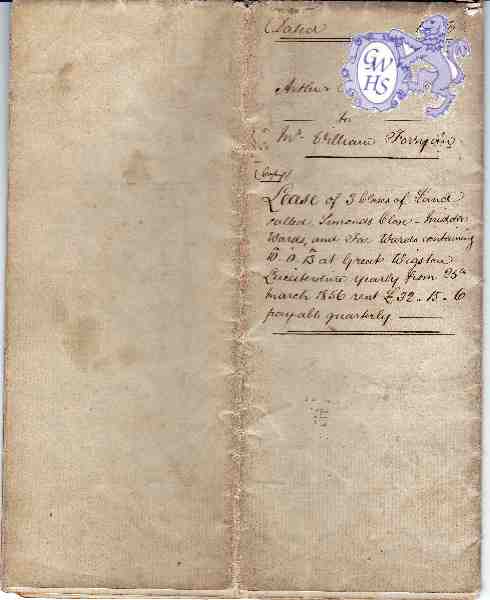 Dated
GW
HS
Arthur
to
Mr. William Forryan
Copy
Lease of 3 Closes of Land
called Simonds Close - Midder
Wards, and Far Wards containing
10A. 0R. 13P at Great Wigston
Leicestershire yearly from 25th
March 1856 rent £32 - 15 - 6
payable quarterly